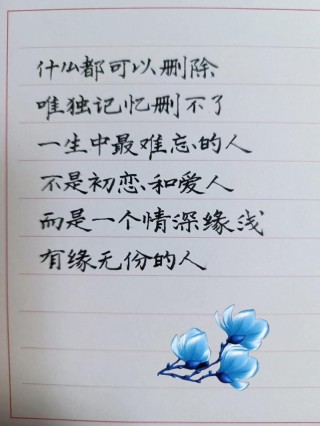 什么都可以删除
唯独记忆删不了
一生中最难忘的人
不是初恋和爱人
而是一个情深缘浅
有缘无份的人